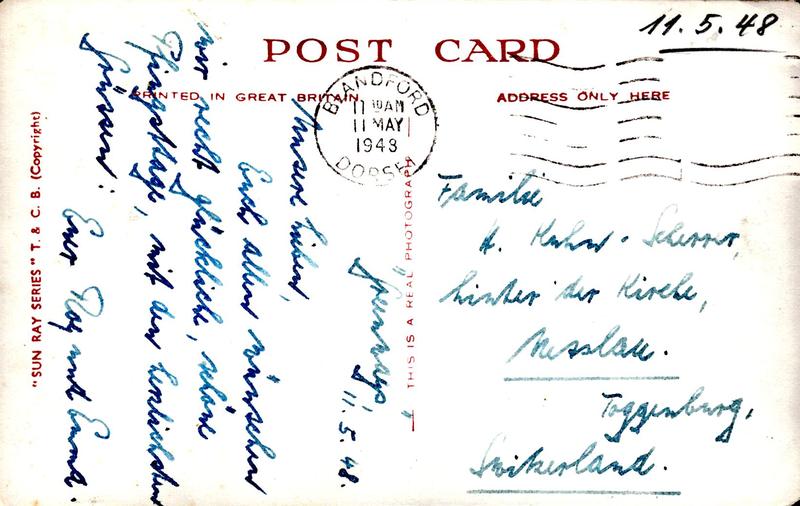 11.5.48
POST CARD
PRINTED IN GREAT BRITAIN
ADDRESS ONLY HERE
BLANDFORD
11 10AM
11 MAY
1948
DORSET
"SUN RAY SERIES" T. & C. B. (Copyright)
THIS IS A REAL PHOTOGRAPH
"Greenways",
11.5.48.
Unsere Lieben,
Euch allen wünschen
wir recht glückliche, schöne
Pfingsttage, mit den herzlichsten
Grüssen:
Euer Roy und Emmd.
Familie
H. Kuhn-Scherrer,
hinter der Kirche,
Nesslau.
Toggenburg,
Switzerland.